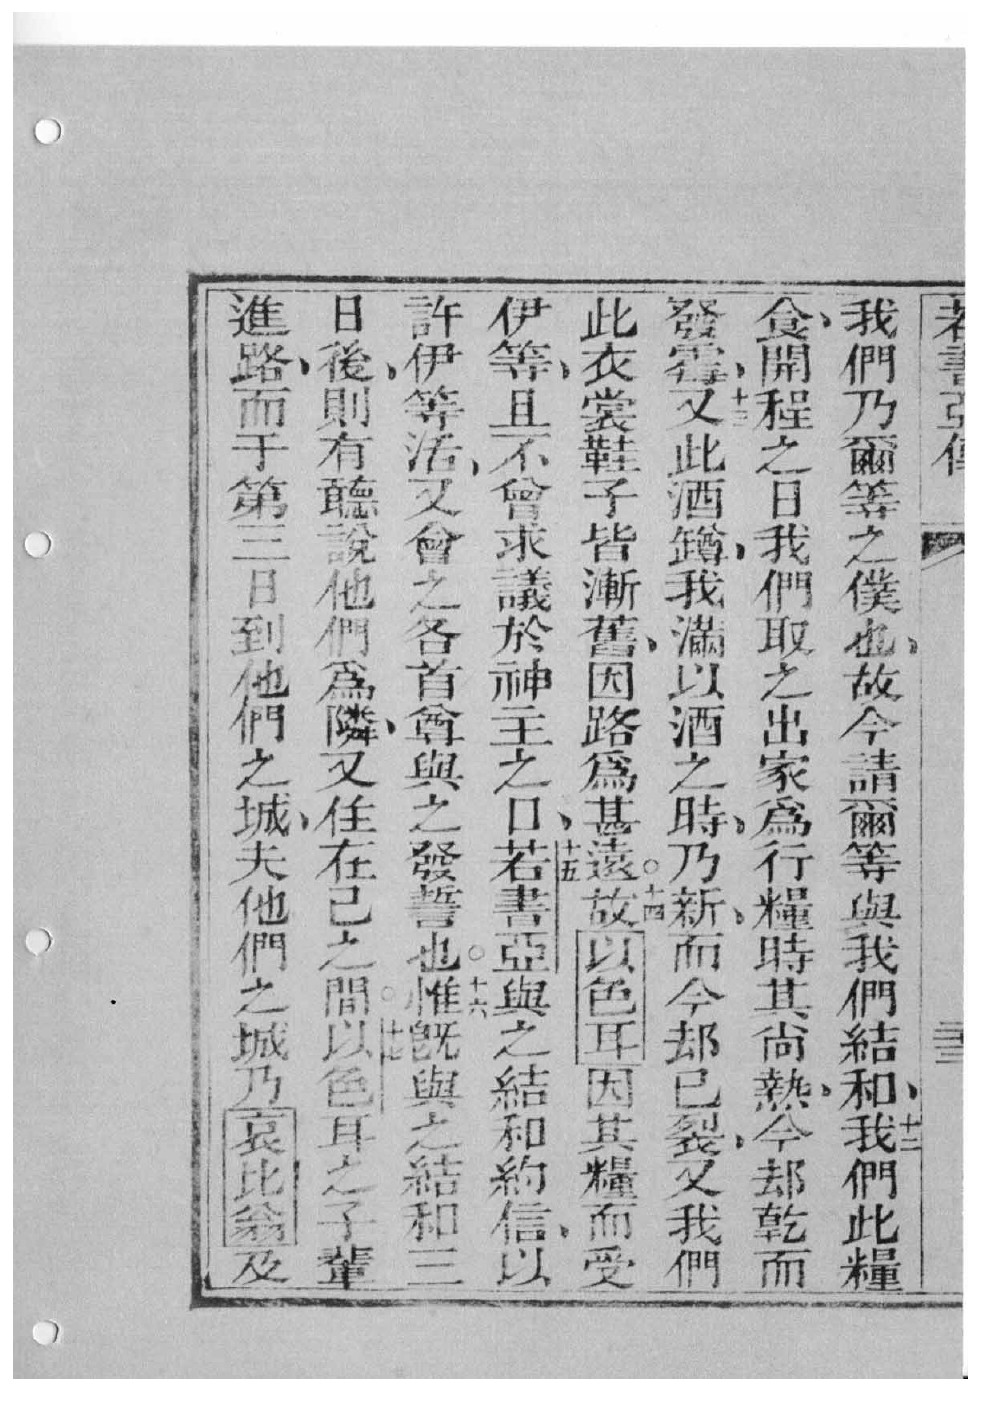 若書亞傳
我們乃爾等之僕也、故今請爾等與我們結和、十二我們此糧
食、開程之日我們取之出家爲行糧時其尚熱、今却乾而
發霉、十三又此酒罇、我滿以酒之時、乃新、而今却已裂、又我們
此衣裳鞋子皆漸舊、因路爲甚遠。十四故以色耳因其糧而受
伊等、且不曾求議於神主之口、十五若書亞與之結和約信、以
許伊等活、又會之各首尊與之發誓也。十六惟旣與之結和三
日後、則有聽說他們爲隣、又住在己之間。十七以色耳之子輩
進路、而于第三日到他們之城、夫他們之城乃哀比翁及